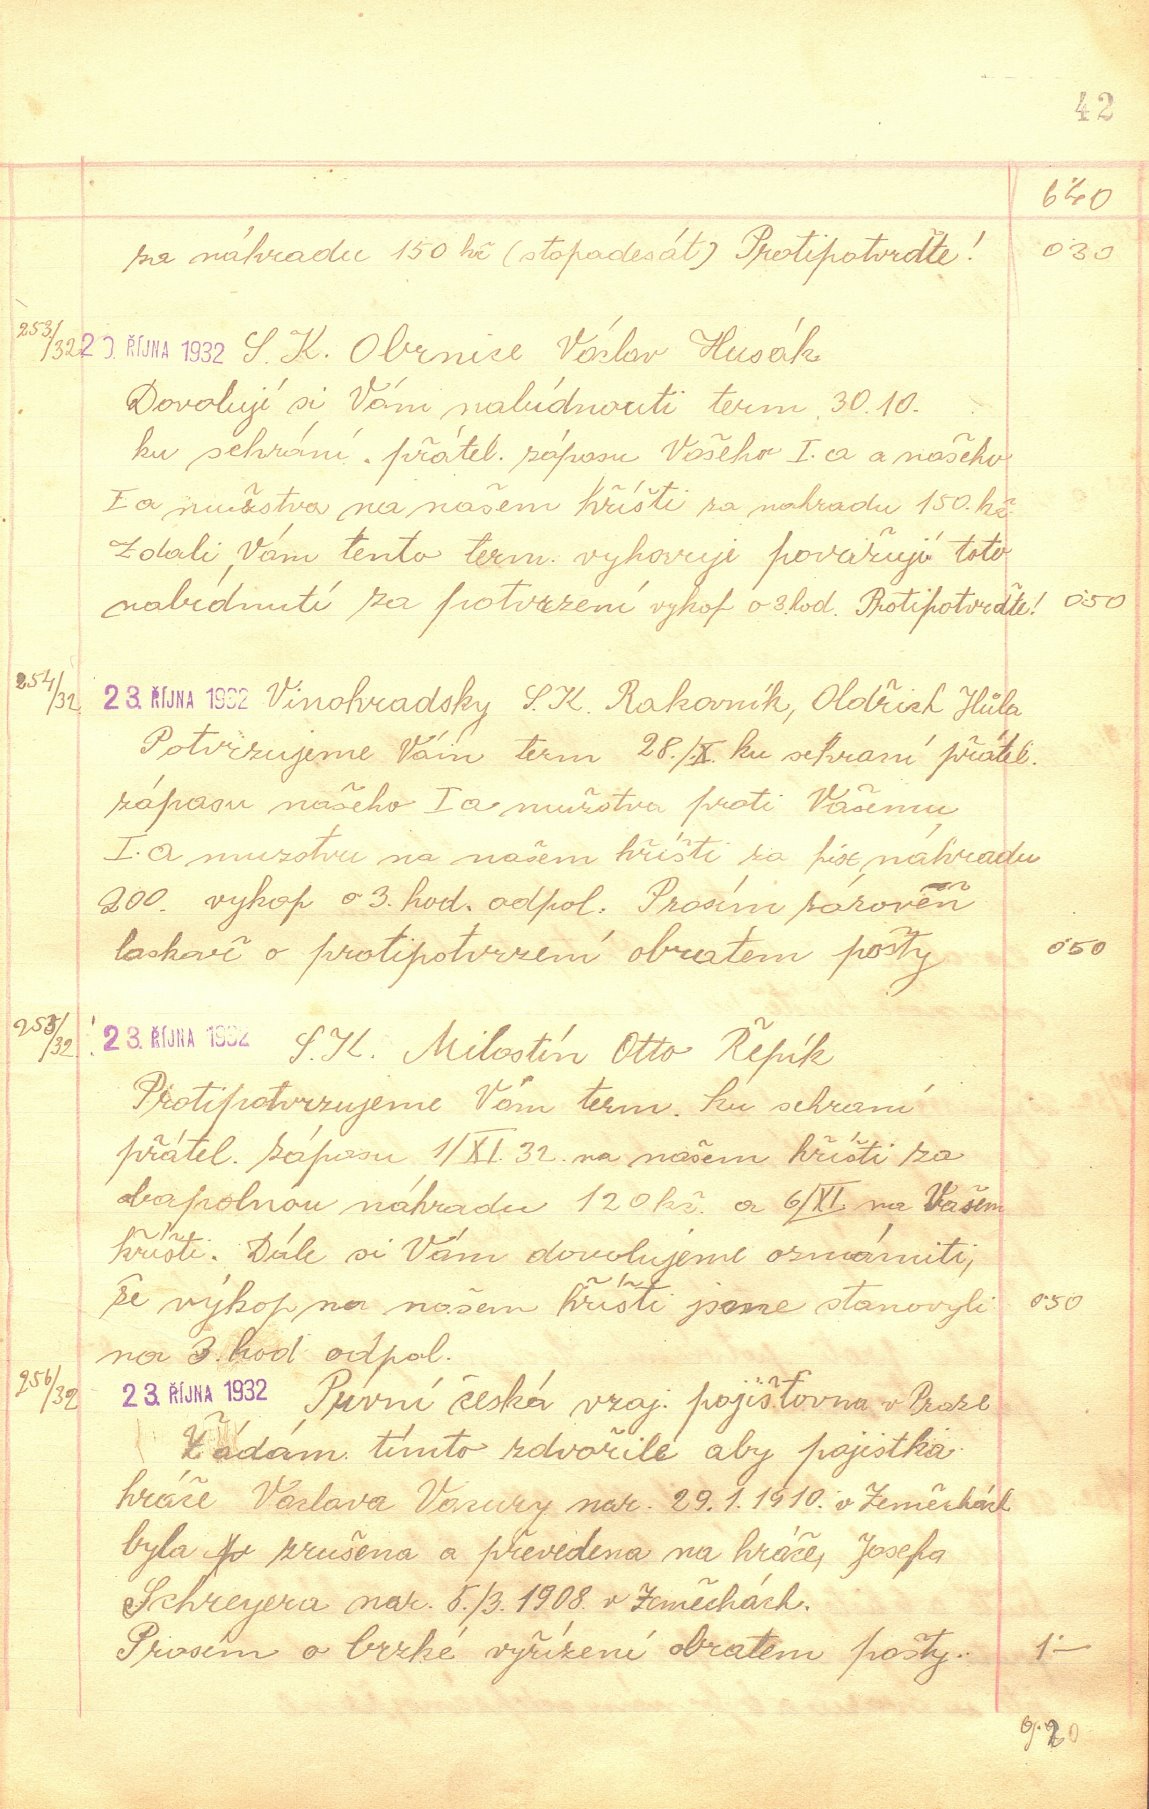 42
6·40
za náhradu 150 kč (stopadesát) Protipotvrďte! 0·30
253/32 20. ŘÍJNA 1932 S. K. Obrnice Václav Husák
Dovoluji si Vám nabídnouti term. 30.10.
ku sehrání. přátel. zápasu Vašeho I. a a našeho
I a mužstva na našem hřišti za nahradu 150. kč
Zdali Vám tento term. vyhovuje považuji toto
nabídnutí za potvrzení vykop o 3 hod. Protipotvrďte! 0·50
254/32 23. ŘÍJNA 1932 Vinohradsky S. K. Rakovník, Oldřich Hůla
Potvrzujeme Vám term 28./X. ku sehraní přátel.
zápasu našeho I a mužstva proti Vašemu
I. a muzstvu na našem hřišti za fix, náhradu
200. vykop o 3. hod. odpol. Prosím zároveň
laskavě o protipotvrzení obratem pošty 0·50
255/32 23. ŘÍJNA 1932 S. K. Milostín Otto Řepík
Protipotvrzujeme Vám term. ku sehraní
přátel. zápasu 1/XI. 32. na našem hřišti za
náhradu 120 kč. a 6/XI. na Vašem
hřišti. Dále si Vám dovolujeme oznámiti,
že výkop na našem hřišti jsme stanovyli 0·50
na 3. hod odpol.
256/32 23. ŘÍJNA 1932 První česká vzaj. pojišťovna v Praze
Žádám tímto zdvořile aby pojistka
hráče Václava Vacury nar. 29. 1. 1910. v Zeměchách
byla zrušena a převedena na hráče, Josefa
Schreyera nar. 5./3. 1908. v Zeměchách.
Prosím o brzké vyřízení obratem pošty. 1·—
9·20